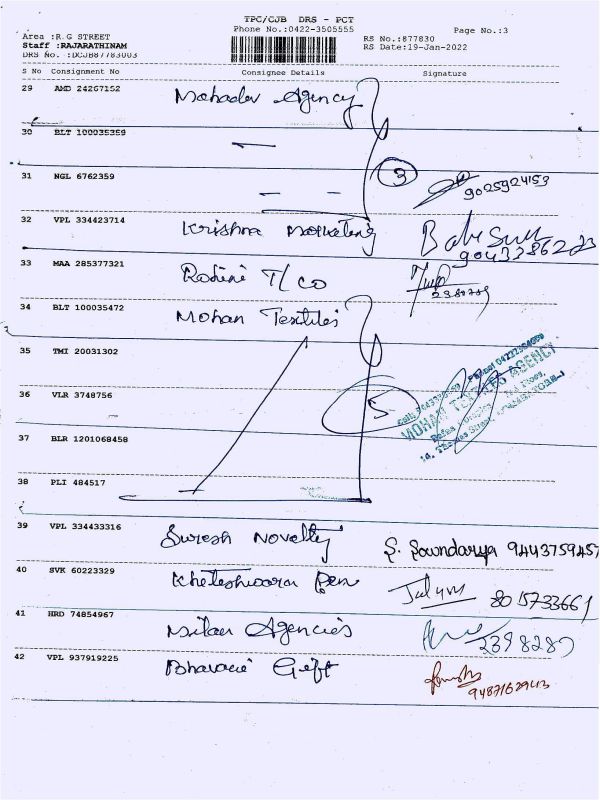 TPC/CJB DRS - PCT
Phone No.:0422-3505555
Page No.:3
Area :R.G STREET
RS No.:877830
Staff :RAJARATHINAM
RS Date:19-Jan-2022
DRS No. :DCJB87783003
S No Consignment No Consignee Details Signature
29 AMD 24267152 Mahadev Agency
30 BLT 100035359
31 NGL 6762359 3 9025924153
32 VPL 334423714 Krishna Marketing
33 MAA 285377321 T/Co
34 BLT 100035472 Mohan Textiles
35 TMI 20031302
MOHAN TEXTILES AGENCY
36 VLR 3748756 5
37 BLR 1201068458
38 PLI 484517
39 VPL 334433316 Suresh Novelty S. Soundarya 9443759457
40 SVK 60223329 Kheteshwara Pen 8015733661
41 HRD 74854967 Milan Agencies 2398280
42 VPL 937919225 Gift